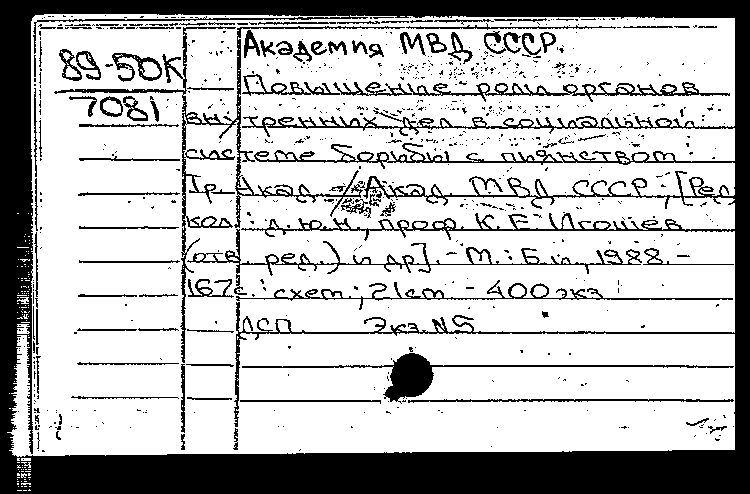 89-50К
7081
Академия МВД СССР.
Повышение роли органов
внутренних дел в социальной
системе борьбы с пьянством :
Тр. Акад. / Акад. МВД СССР ; [Ред.
кол. : д.ю.н., проф. К. Е. Игошев
(отв. ред.) и др]. - М. : Б.и., 1988. -
167с. : схем. ; 21см - 400экз
ДСП. Экз. N5